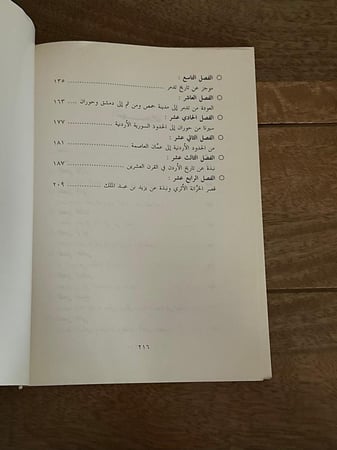 ○ الفصل التاسع :
موجز عن تاريخ تدمر ........ ١٣٥
○ الفصل العاشر :
العودة من تدمر إلى مدينة حمص ومن ثم إلى دمشق وحوران ........ ١٦٣
○ الفصل الحادي عشر :
سيرنا من حوران إلى الحدود السورية الأردنية ........ ١٧٧
○ الفصل الثاني عشر :
من الحدود الأردنية إلى عمّان العاصمة ........ ١٨١
○ الفصل الثالث عشر :
نبذة عن تاريخ الأردن في القرن العشرين ........ ١٨٧
○ الفصل الرابع عشر :
قصر الخرّانة الأثري ونبذة عن يزيد بن عبد الملك ........ ٢٠٩
٢١٦